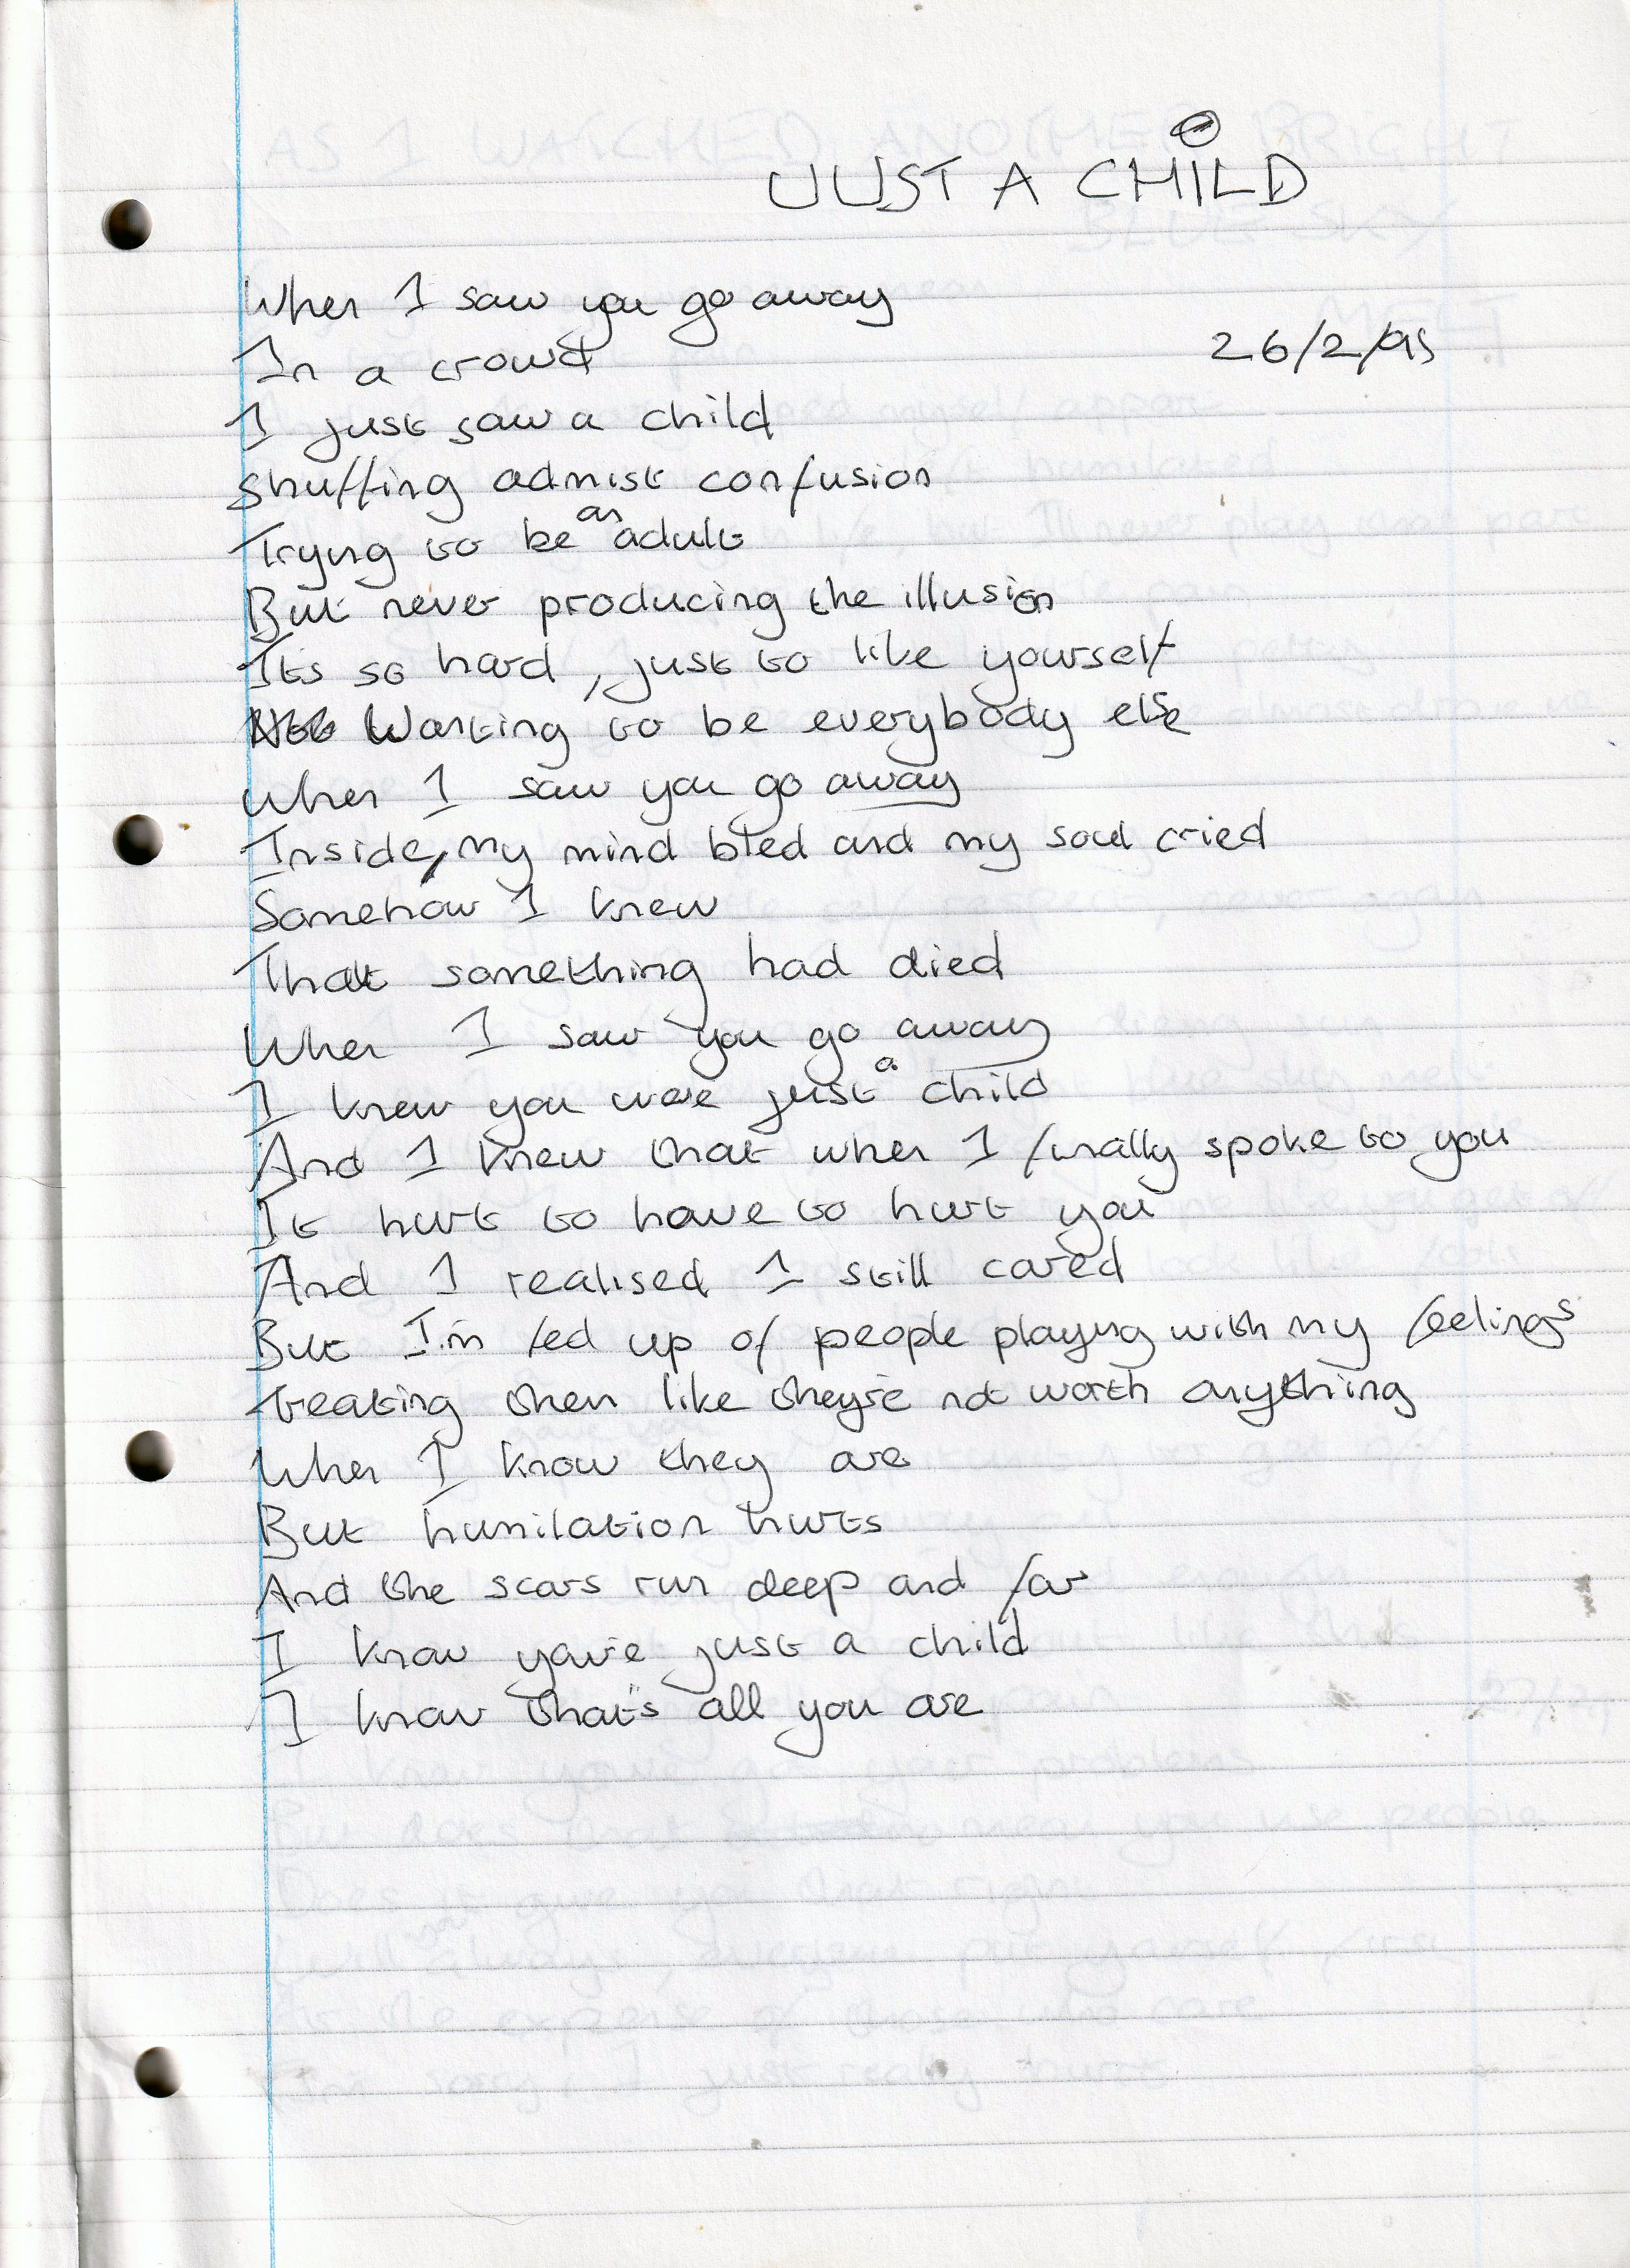 JUST A CHILD
When I saw you go away
26/2/95
In a crowd
I just saw a child
Shuffing admist confusion
Tryng to be an adult
But never producing the illusion
Its so hard, just to like yourself
Not Wanting to be everybody else
When I saw you go away
Inside, my mind bled and my soul cried
Somehow I knew
That something had died
When I saw you go away
I knew you were just a child
And I knew that when I finally spoke to you
It hurt to have to hurt you
And I realised I still cared
But I'm fed up of people playng with my feelings
treating them like they're not worth anything
When I know they are
But humilation hurts
And the scars run deep and far
I know you're just a child
I know that's all you are